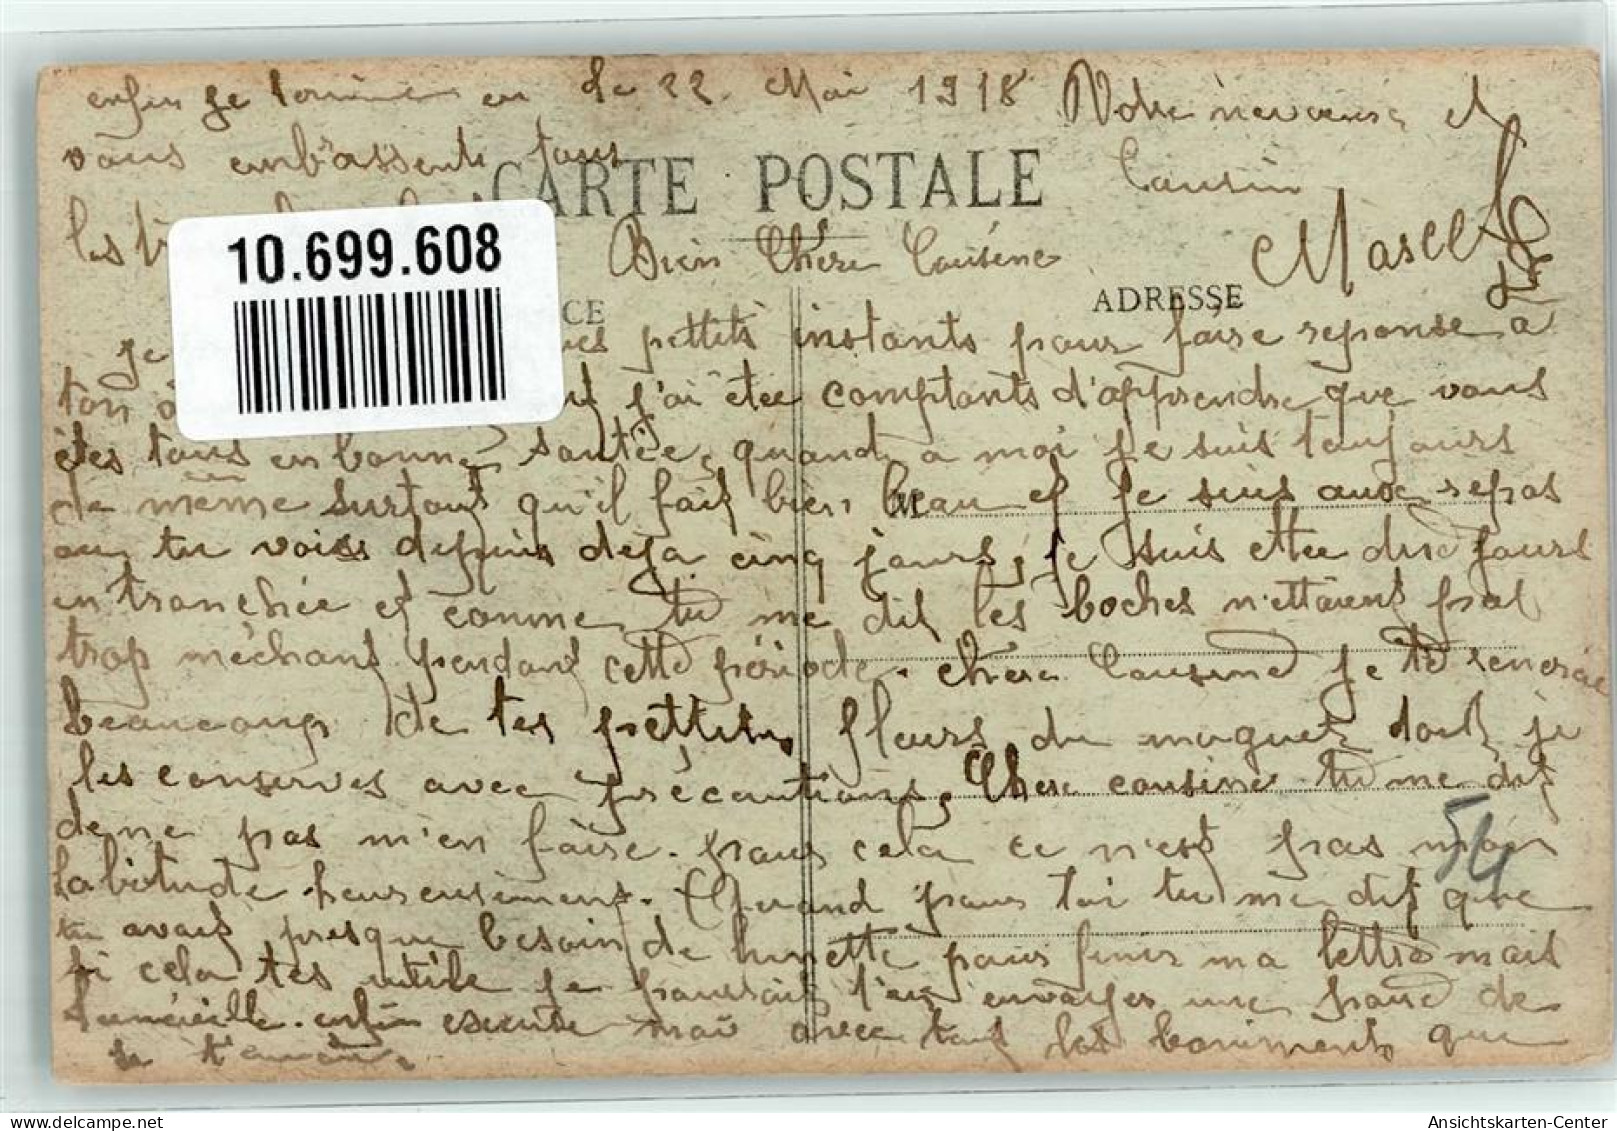 Le 22 Mai 1918
CARTE POSTALE
10.699.608
Bien Chère Cousine
CE
ADRESSE
je pettits instants pour faire reponse a
ton j'ai étée comptants d'apprendre que vous
êtes tous en bonne santée, quand a moi je suis toujours
de même surtout qu'il fait bien beau et je suis auxe repos
M
ou tu vois depuis deja cinq jours, je suis ettée dix jours
en tranchée et comme tu me dit les boches n'ettaient pas
trop méchant pendant cette période. Chère Cousine je te remercie
beaucoup de tes pettites fleurs du muguet dont je
les conserves avec précautions, Chere cousine tu me dit
de ne pas m'en faire. pour cela ce n'est pas mon
habitude heureusement. Quand pour toi tu me dit que
54
tu avait presque besoin de lunette pour finir ma lettre mais
si cela tes utile je pourrait t'en envoyer une paire de
avec tout les boniments que
je t'envoie
enfin je termine en
vous embrassent tous
Votre neveuse et
Cousin
Marcel
Ansichtskarten-Center